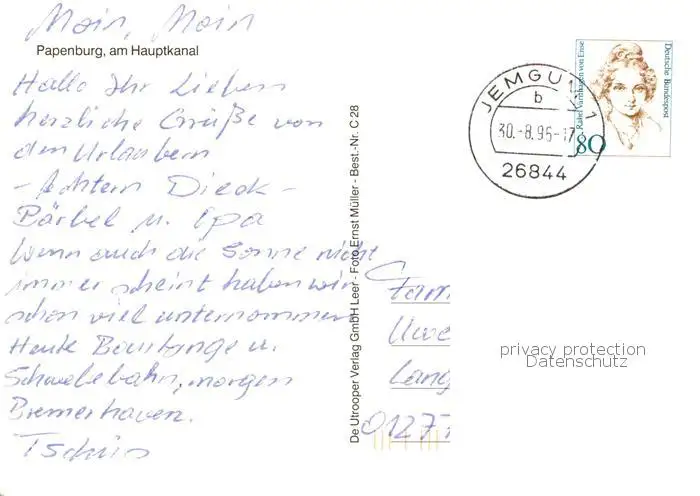 Moin, Moin
Papenburg, am Hauptkanal
Hallo Ihr Lieben
herzliche Grüße von
den Urlaubern
- Achtern Dieck -
Bärbel u. Opa
Wenn auch die Sonne nicht
immer scheint haben wir
schon viel unternommen
Heute Bourtange u.
Schwebebahn, morgen
Bremerhaven.
Tschüs
De Utrooper Verlag GmbH Leer - Foto Ernst Müller - Best.-Nr. C 28
JEMGUM 1
b
30.-8.95-17
26844
Rahel Varnhagen von Ense
Deutsche Bundespost
80
Fam
Uwe
Lang
0127
privacy protection
Datenschutz